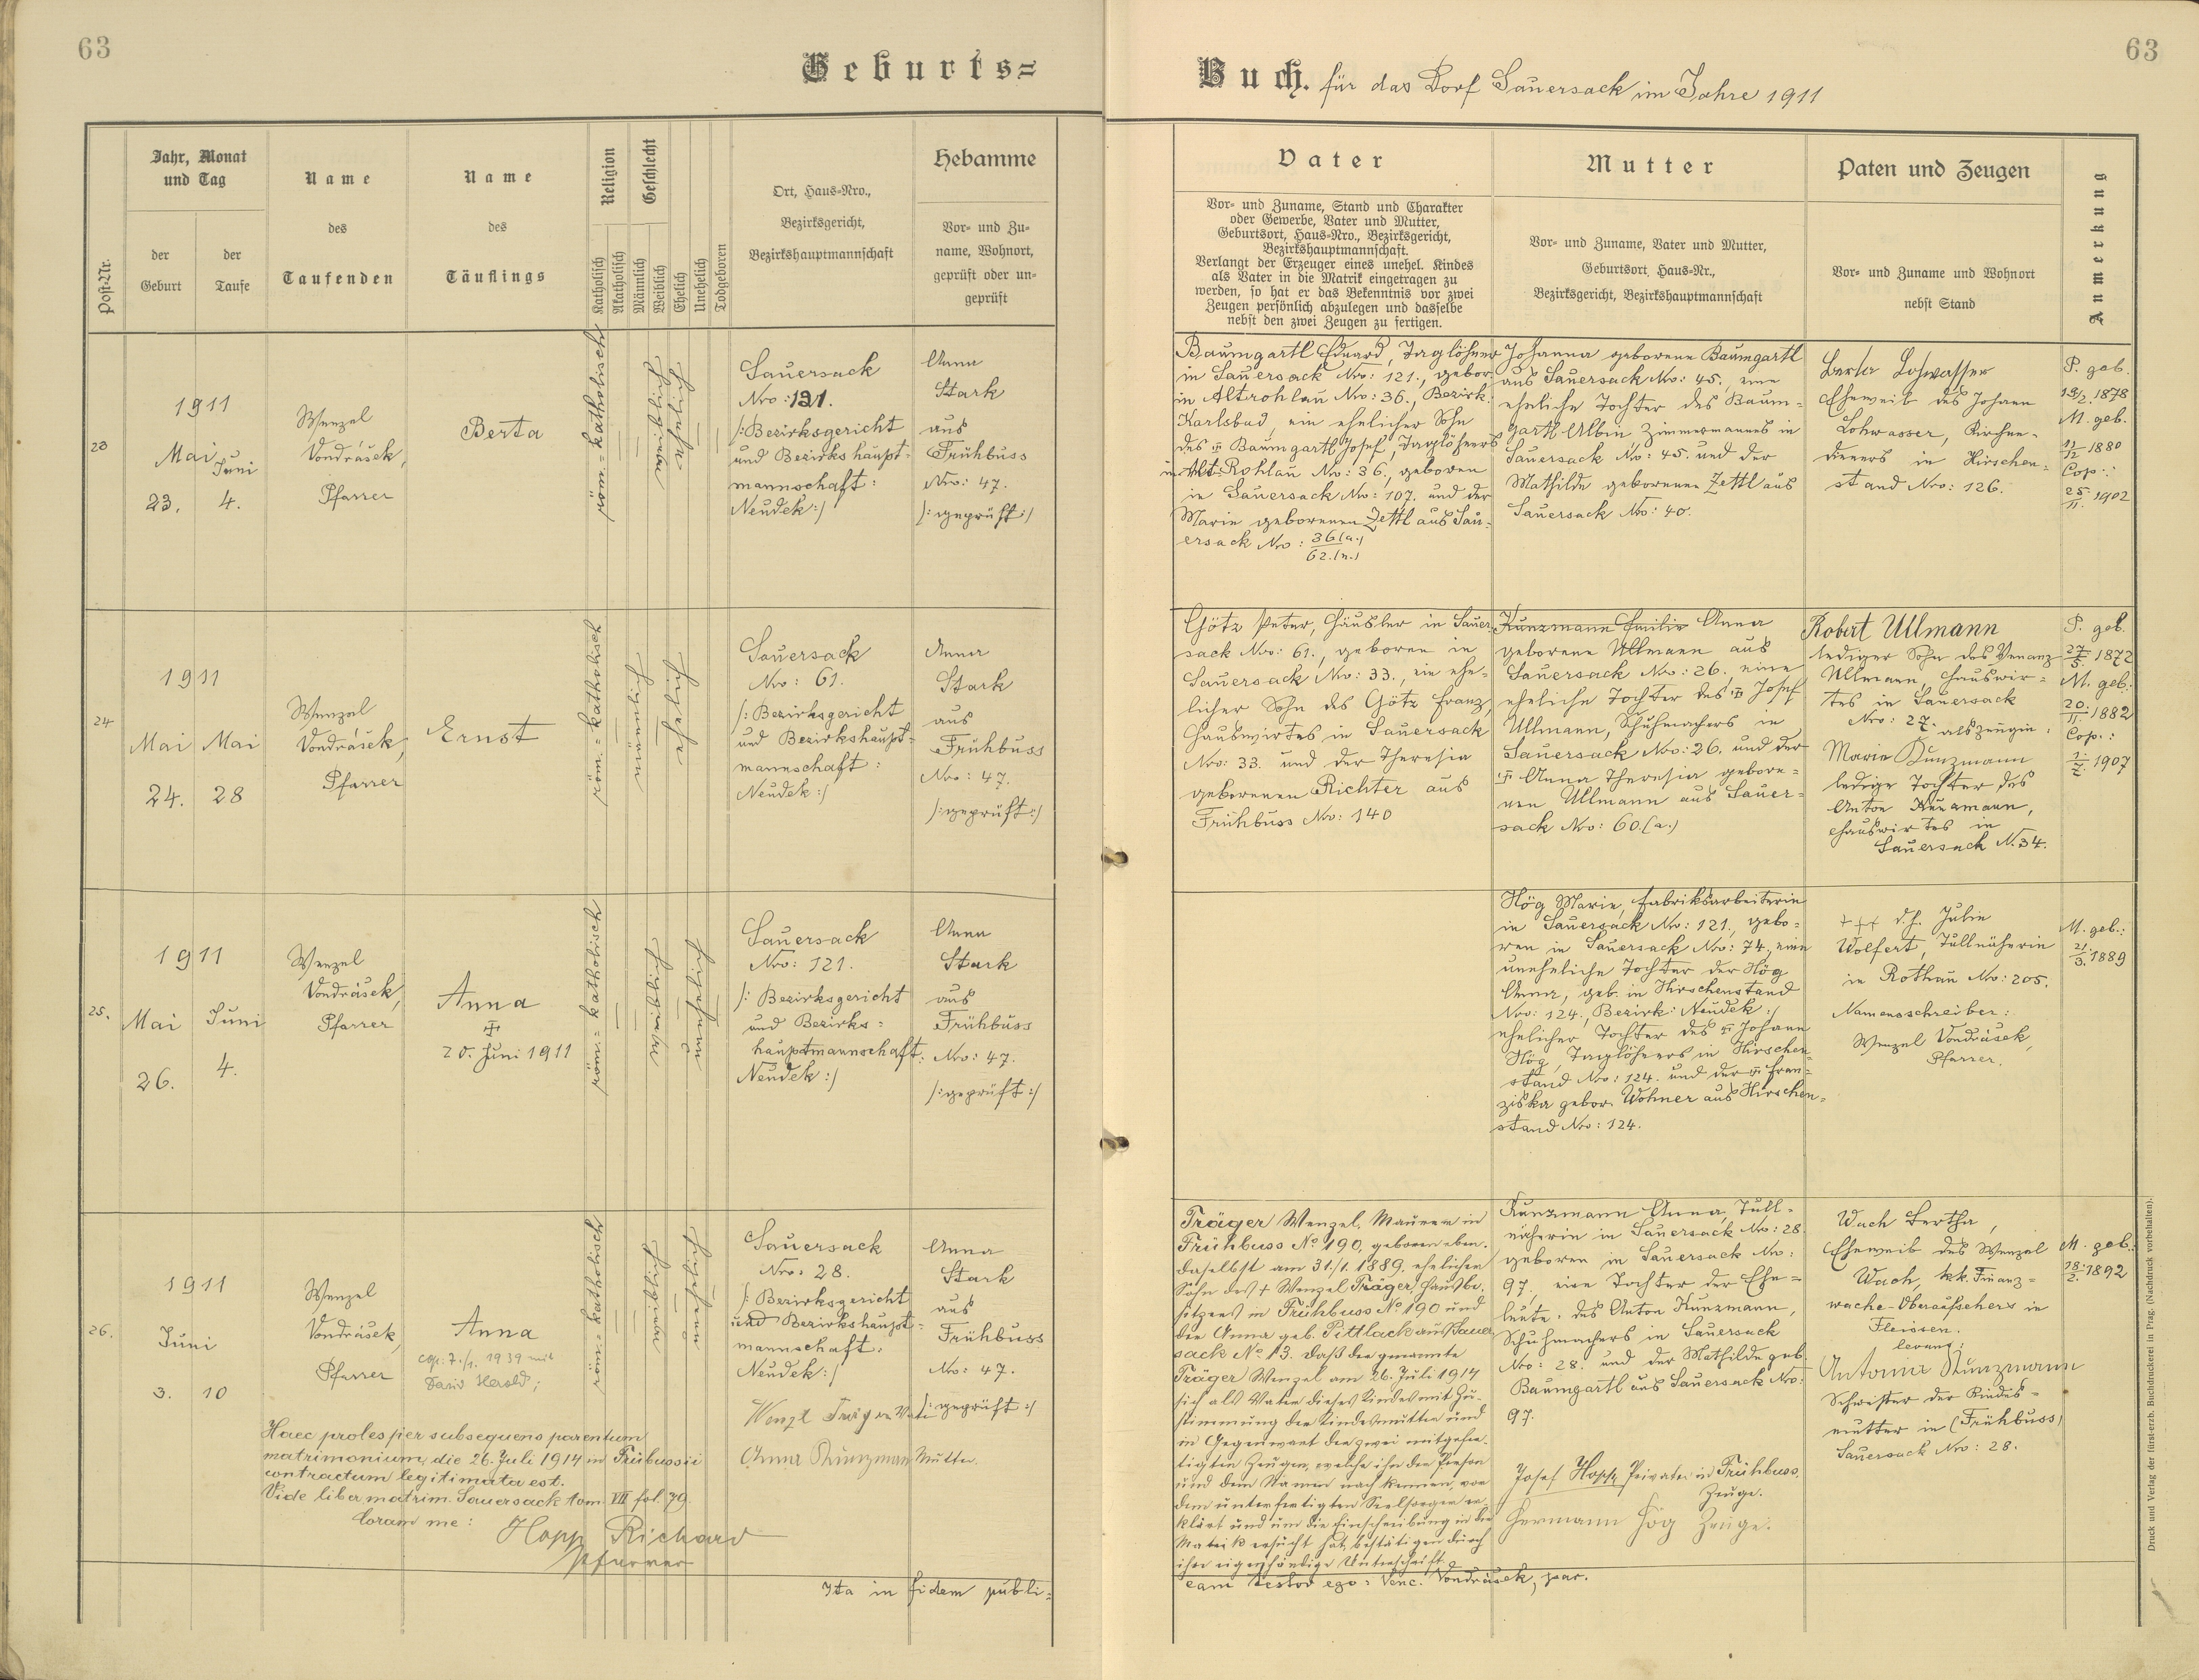 63
63
Geburts=
Buch. für das Dorf Sauersack im Jahre 1911
Post-Nr.
Jahr, Monat
und Tag
der
Geburt
der
Taufe
Name
des
Taufenden
Name
des
Täuflings
Religion
Katholisch
Akatholisch
Geschlecht
Männlich
Weiblich
Ehelich
Unehelich
Todgeboren
Ort, Haus-Nro.,
Bezirksgericht,
Bezirkshauptmannschaft
Hebamme
Vor- und Zu-
name, Wohnort,
geprüft oder un-
geprüft
Vater
Vor- und Zuname, Stand und Charakter
oder Gewerbe, Vater und Mutter,
Geburtsort, Haus-Nro., Bezirksgericht,
Bezirkshauptmannschaft.
Verlangt der Erzeuger eines unehel. Kindes
als Vater in die Matrik eingetragen zu
werden, so hat er das Bekenntnis vor zwei
Zeugen persönlich abzulegen und dasselbe
nebst den zwei Zeugen zu fertigen.
Mutter
Vor- und Zuname, Vater und Mutter,
Geburtsort, Haus-Nr.,
Bezirksgericht, Bezirkshauptmannschaft
Paten und Zeugen
Vor- und Zuname und Wohnort
nebst Stand
Anmerkung
23
1911
Mai Juni
23. 4.
Wenzel
Vondrášek,
Pfarrer
Berta
röm.= katholisch
Sauersack
Nro: 121.
/: Bezirksgericht
und Bezirkshaupt-
mannschaft:
Neudek :/
Anna
Stark
aus
Frühbuss
Nro: 47.
/: geprüft :/
Baumgartl Eduard, Taglöhner
in Sauersack Nro: 121., gebor.
in Altrohlau Nro: 36., Bezirk:
Karlsbad, ein ehelicher Sohn
des ✝ Baumgartl Josef, Taglöhners
in Alt-Rohlau Nro: 36., geboren
in Sauersack Nro: 107. und der
Marie geborenen Zettl aus Sau-
ersack Nro: 36(a.)
62.(n.)
Johanna geborene Baumgartl
aus Sauersack Nro: 45., eine
eheliche Tochter des Baum-
gartl Albin Zimmermannes in
Sauersack No: 45. und der
Mathilde geborenen Zettl aus
Sauersack No: 40.
Berta Lohwasser
Eheweib des Johann
Lohwasser, Kirchen-
dieners in Hirschen-
stand Nro: 126.
P. geb.
19/2. 1878
M. geb.
11/12 1880
Cop.:
25./11. 1902
24
1911
Mai Mai
24. 28
Wenzel
Vondrášek,
Pfarrer
Ernst
röm.= katholisch
Sauersack
Nro: 61.
/: Bezirksgericht
und Bezirkshaupt-
mannschaft:
Neudek :/
Anna
Stark
aus
Frühbuss
Nro: 47.
/: geprüft :/
Götz Peter, Häusler in Sauer-
sack Nro: 61., geboren in
Sauersack Nro: 33., ein ehe-
licher Sohn des Götz Franz,
Hauswirtes in Sauersack
Nro: 33. und der Theresia
geborenen Richter aus
Frühbuss Nro: 140
Kunzmann Emilie Anna
geborene Ullmann aus
Sauersack Nro: 26. eine
eheliche Tochter des ✝ Josef
Ullmann, Schuhmachers in
Sauersack Nro: 26. und der
✝ Anna Theresia gebore-
nen Ullmann aus Sauer-
sack Nro: 60.(a.)
Robert Ullmann
lediger Sohn des Venanz
Ullmann, Hauswir-
tes in Sauersack
Nro: 27. als zeugin:
Marie Kunzmann
ledige Tochter des
Anton Kunzmann,
Hauswirtes in
Sauersack N. 34.
P. geb.
27/5. 1872
M. geb.:
20./11. 1882
Cop.:
1/7. 1907
25.
1911
Mai Juni
26. 4.
Wenzel
Vondrášek,
Pfarrer
Anna
✝
20. Juni 1911
röm.= katholisch
Sauersack
Nro: 121.
/: Bezirksgericht
und Bezirks=
hauptmannschaft:
Neudek :/
Anna
Stark
aus
Frühbuss
Nro: 47.
/: geprüft :/
Hög Marie, Fabriksarbeiterin
in Sauersack Nro: 121., gebo-
ren in Sauersack Nro: 74., eine
uneheliche Tochter der Hög
Anna, geb. in Hirschenstand
Nro: 124., Bezirk: Neudek :/
ehelicher Tochter des ✝ Johann
Hög, Taglöhners in Hirschen-
stand Nro: 124. und der ✝ Fran-
ziska gebor. Wohner aus Hirschen-
stand Nro: 124.
+++ d. h. Julie
Wolfert, Tüllnäherin
in Rothau Nro: 205.
Namensschreiber:
Wenzel Vondrášek,
Pfarrer.
M. geb.:
21./3. 1889
26.
1911
Juni
3. 10
Wenzel
Vondrášek,
Pfarrer
Anna
cop: 7./1. 1939 mit
Herold;
röm.= katholisch
Sauersack
Nro: 28.
/: Bezirksgericht
und Bezirkshaupt-
mannschaft:
Neudek :/
Anna
Stark
aus
Frühbuss
Nro: 47.
/: geprüft :/
Haec proles per subsequens parentum
matrimonium, die 26. Juli 1914 in Frübussii
contractum legitimata est.
Vide liber matrim. Sauersack tom. VII fol. 79.
Coram me: Hopp Richard
Pfarrer
Wenzl Träger Vater
Anna Kunzmann Mutter.
Träger Wenzel, Maurer in
Frühbuss No 190, geboren eben-
daselbst am 31./1. 1889, ehelicher
Sohn des + Wenzel Träger, Hausbe-
sitzers in Frühbuss No 190 und
der Anna geb. Pittlack aus Sauer-
sack No 13. Daß der genannte
Träger Wenzel am 26. Juli 1914
sich als Vater dieses Kindes mit Zu-
stimmung der Kindesmutter und
in Gegenwart der zwei mitgefer-
tigten Zeugen, welche ihn der Person
und dem Namen nach kennen, vor
dem unterfertigten Seelsorger er-
klärt und um die Einschreibung in die
Matrik ersucht hat, bestätigen durch
ihre eigenhändige Unterschrift.
Kunzmann Anna, Tüll-
näherin in Sauersack Nro: 28.
geboren in Sauersack Nro:
97., eine Tochter der Ehe-
leute: des Anton Kunzmann,
Schuhmachers in Sauersack
Nro: 28. und der Mathilde geb.
Baumgartl aus Sauersack Nro:
97.
Josef Hopp, Privater in Frühbuss,
Zeuge.
Hermann Hög Zeuge.
Wach Bertha,
Eheweib des Wenzel
Wach, kk. Finanz-
wache-Oberaufsehers in
Fleissen.
levans:
Antonia Kunzmann
Schwester der Kindes-
mutter in (Frühbuss)
Sauersack Nro: 28.
M. geb.:
18./2. 1892
Ita in fidem publi-
cam testor ego: Venc. Vondrášek, par.
Druck und Verlag der fürst-erzb. Buchdruckerei in Prag. (Nachdruck vorbehalten).